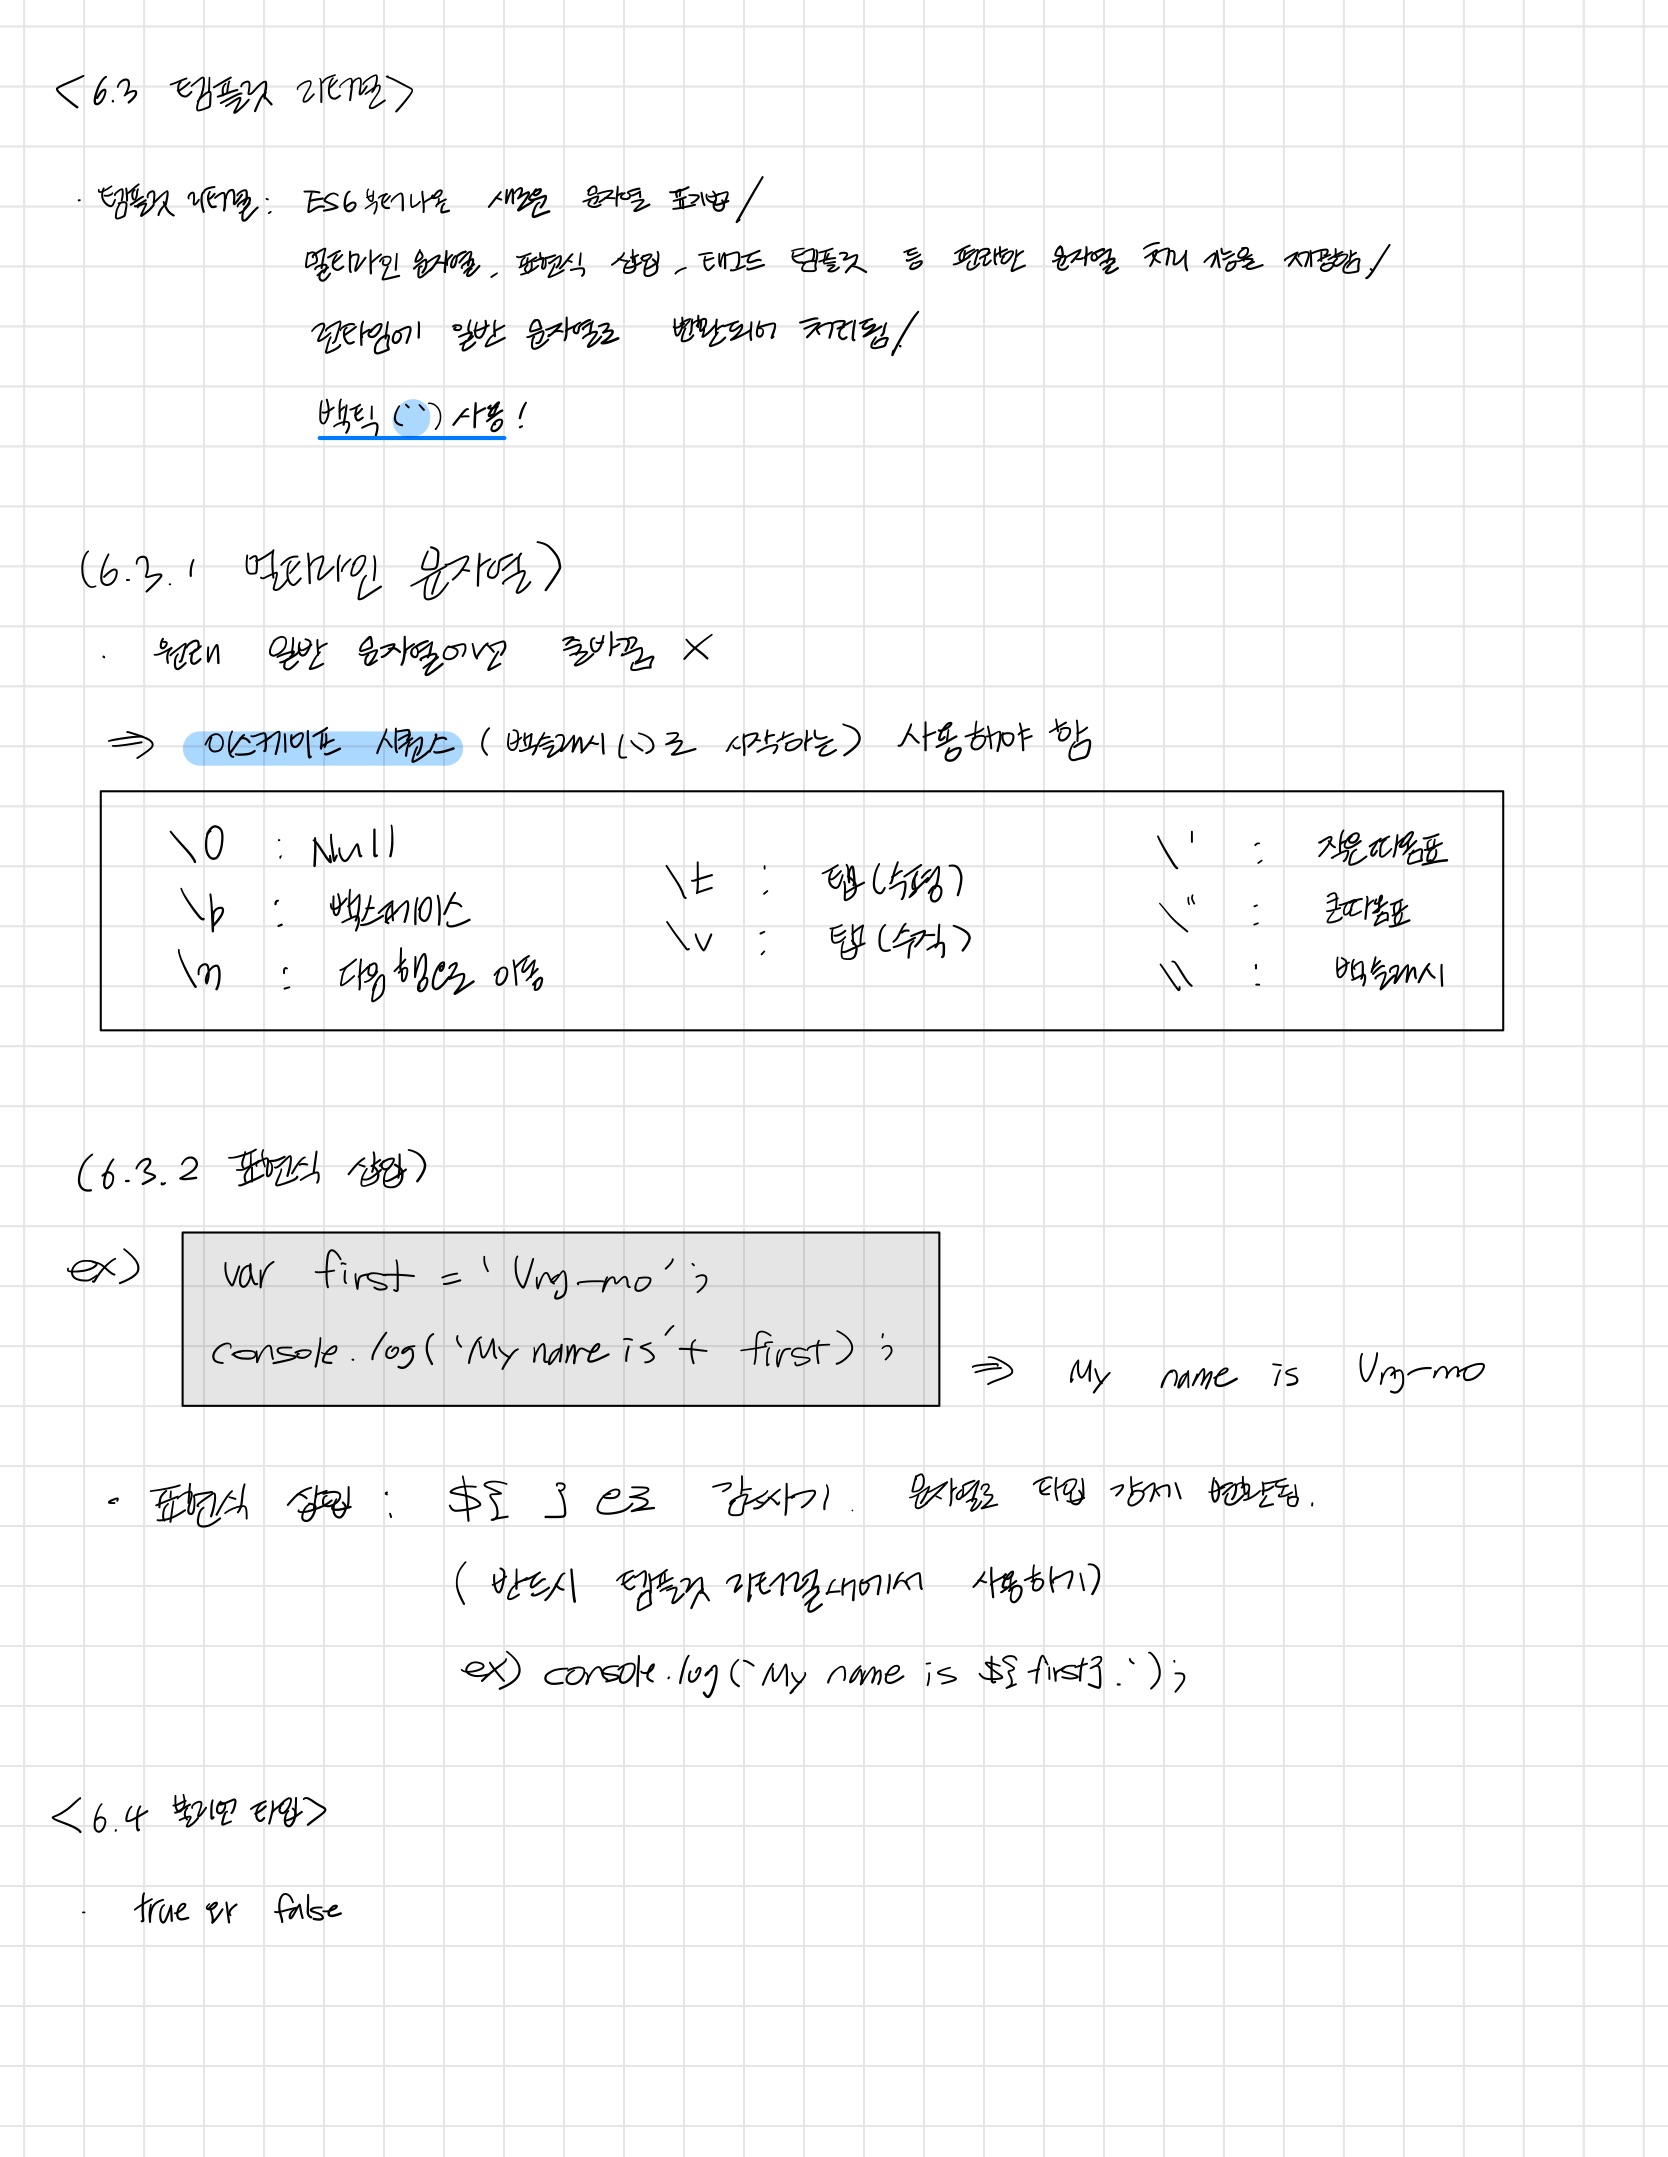 <6.3 템플릿 리터럴>
· 템플릿 리터럴 : ES6부터 나온 새로운 문자열 표기법 /
멀티라인 문자열, 표현식 삽입, 태그드 템플릿 등 편리한 문자열 처리 기능을 제공함 /
런타임에 일반 문자열로 변환되어 처리됨 /
백틱 (``) 사용!
(6.3.1 멀티라인 문자열)
· 원래 일반 문자열에선 줄바꿈 X
⇒ 이스케이프 시퀀스 (백슬래시(\)로 시작하는) 사용해야 함
\0 : Null
\b : 백스페이스
\n : 다음 행으로 이동
\t : 탭(수평)
\v : 탭(수직)
\' : 작은따옴표
\" : 큰따옴표
\\ : 백슬래시
(6.3.2 표현식 삽입)
ex)
var first = 'Ung-mo';
console.log('My name is' + first);
⇒ My name is Ung-mo
· 표현식 삽입 : ${ } 으로 감싸기. 문자열로 타입 강제 변환됨.
(반드시 템플릿 리터럴 내에서 사용하기)
ex) console.log(`My name is ${first}.`);
<6.4 불리언 타입>
· true 와 false